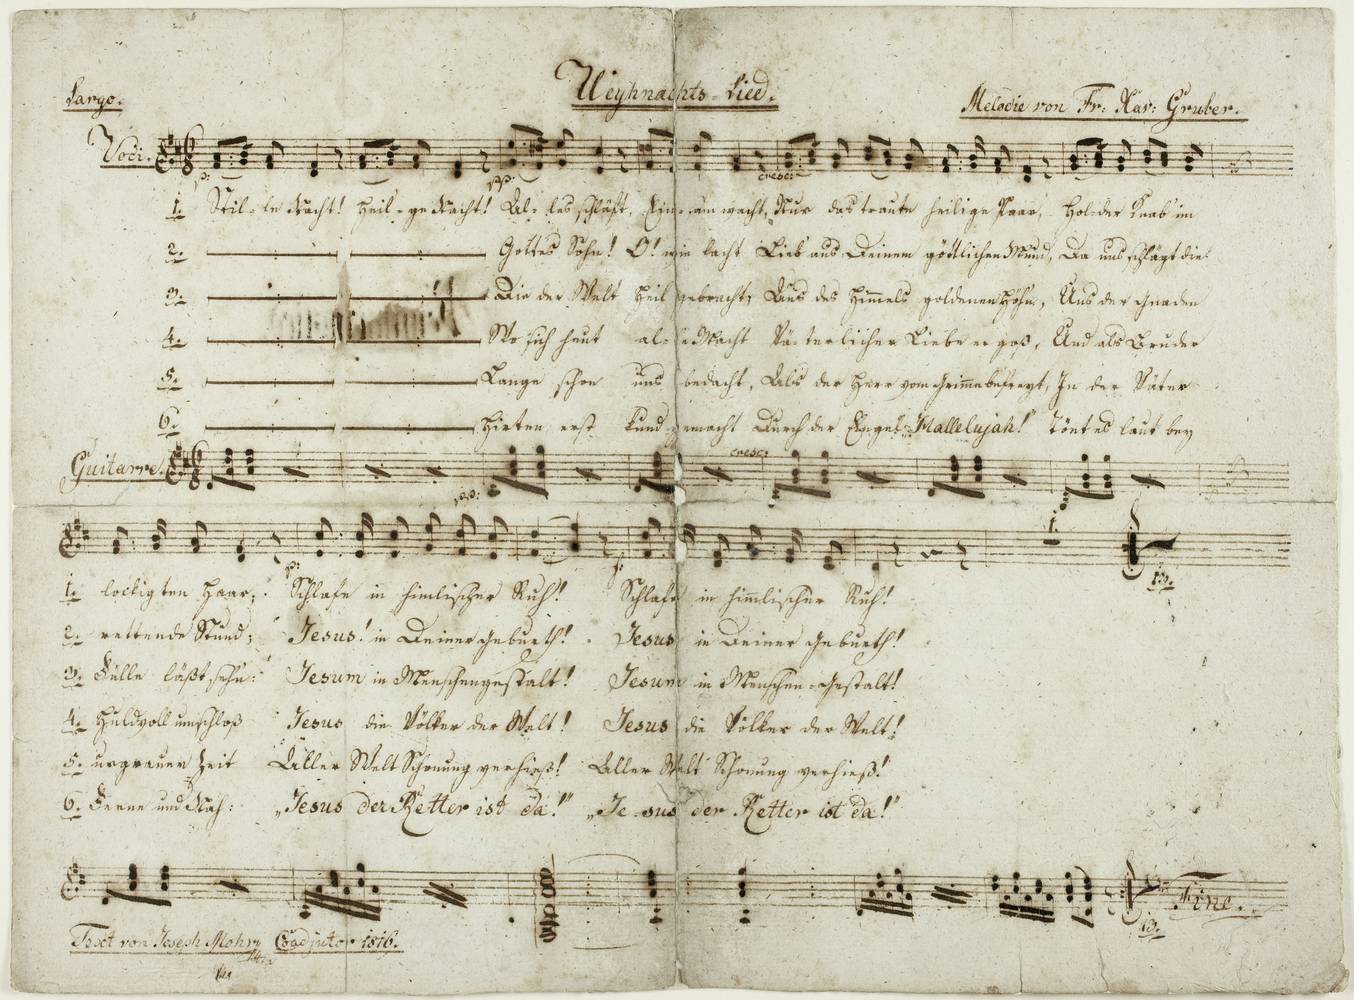 Weyhnachts-Lied.
Largo.
Melodie von Fr: Xav: Gruber.
Voci.
p: pp: cresc:
1. Stil-le Nacht! Heil-ge Nacht! Al-les schläft, Ein-sam wacht, Nur das traute heilige Paar, Hol-der Knab' im
2. Gottes Sohn! O! wie lacht Lieb' aus Deinem göttlichen Mund, Da uns schlägt die
3. Die der Welt Heil gebracht, Aus des Himmels goldenen Höhn, Uns der Gnaden
4. Wo sich heut al-le Macht Vä-terlicher Liebe ergoß, Und als Bruder
5. Lange schon uns bedacht, Als der Herr vom Grimme befreyt, In der Väter
6. Hirten erst kund gemacht Durch der Engel „Hallelujah!" Tönt es laut bey
Guitarre.
pp: cresc:
p:
1.
1. lockigten Haar; Schlafe in himlischer Ruh! Schlafe in himmlischer Ruh!
2. rettende Stund; Jesus! in Deiner Geburth! Jesus in Deiner Geburth!
3. Fülle läßt sehn: Jesum in Menschengestalt! Jesum in Menschen-Gestalt!
4. Huldvoll umschloß Jesus die Völker der Welt! Jesus die Völker der Welt!
5. urgrauer Zeit Aller Welt Schonung verhieß! Aller Welt Schonung verhieß!
6. Ferne und Nah: „Jesus der Retter ist da!" „Je-sus der Retter ist da!"
Fine.
Text von Joseph Mohr Coadjutor 1816.